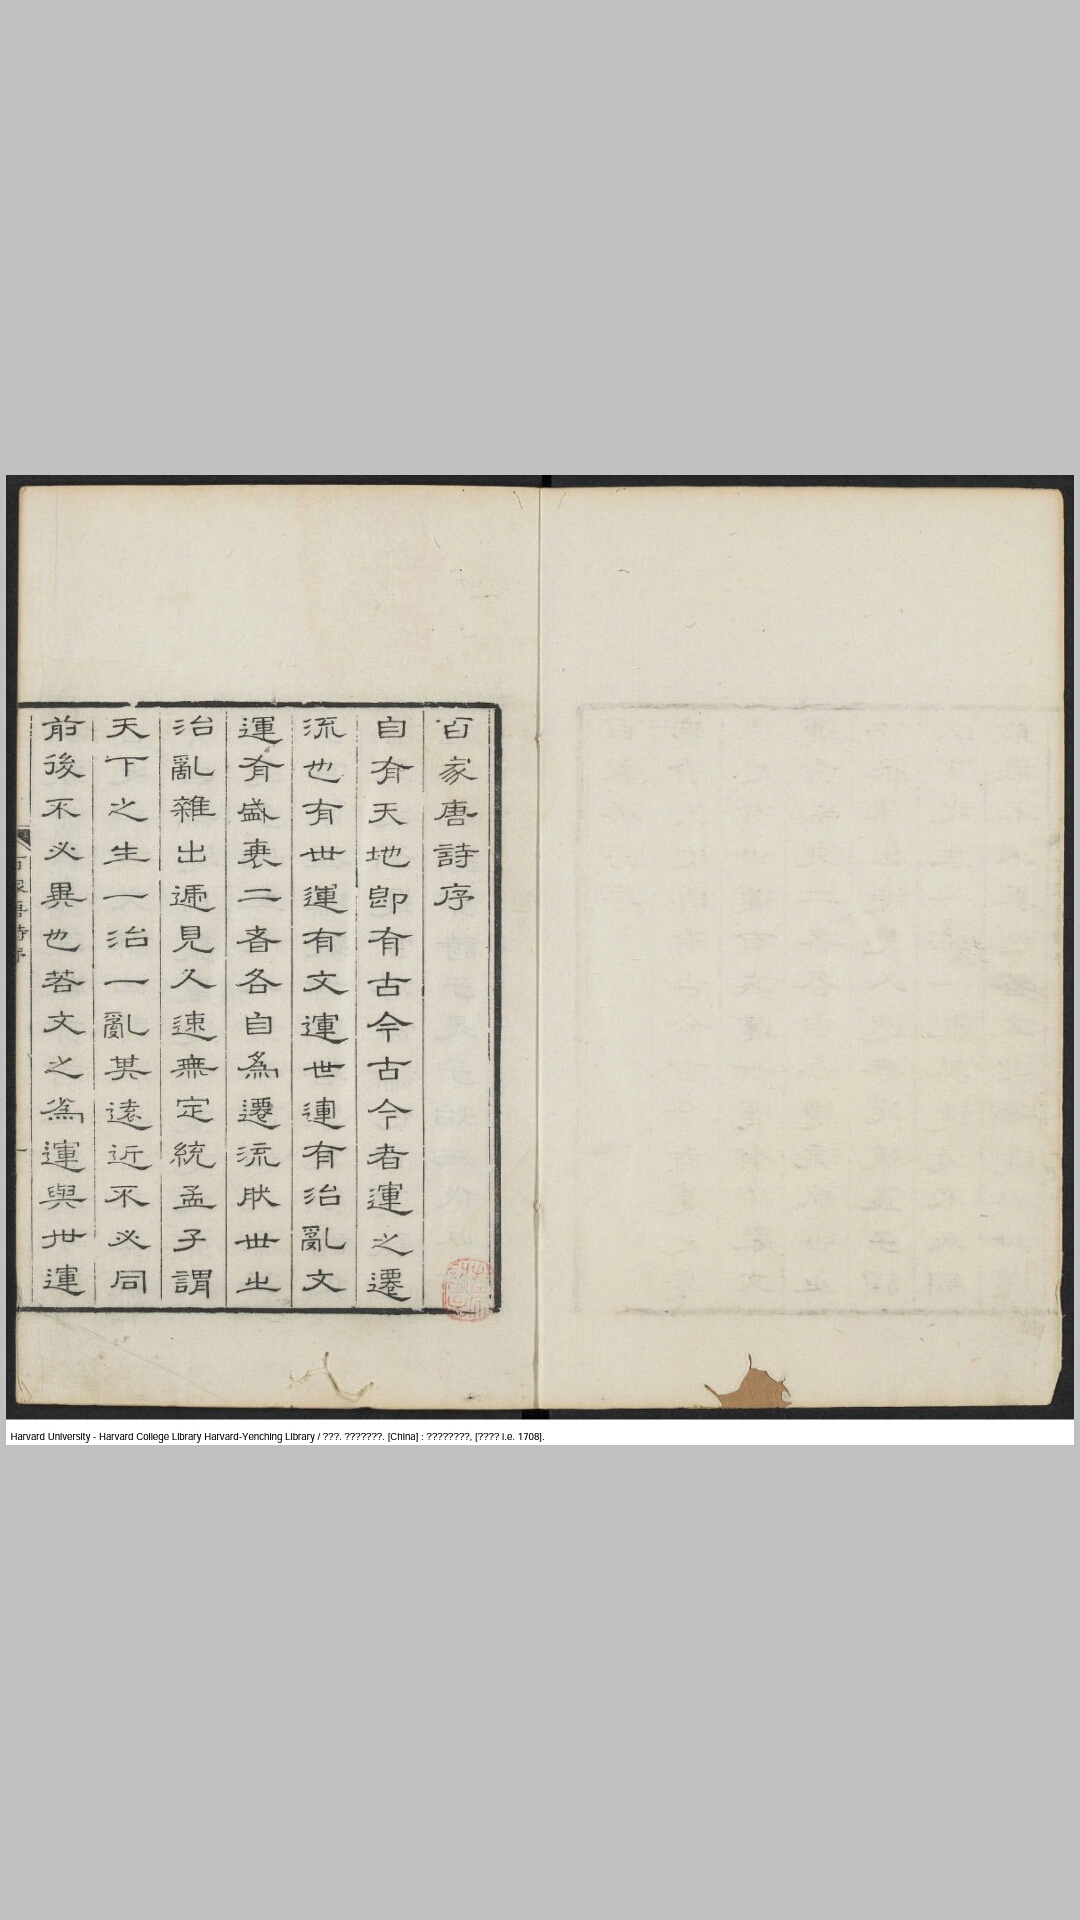 百家唐詩序
自有天地即有古今古今者運之遷
流也有世運有文運世運有治亂文
運有盛衰二者各自為遷流肰世之
治亂雜出遞見久速無定統孟子謂
天下之生一治一亂其遠近不必同
前後不必異也若文之為運與世運
百家唐詩序
一
Harvard University - Harvard College Library Harvard-Yenching Library / ???. ???????. [China] : ????????, [???? i.e. 1708].